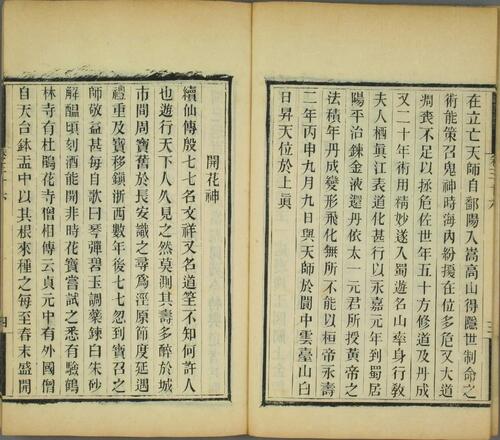 在立亡天師自鄱陽入嵩高山得隱世制命之
術能策召鬼神時海內紛擾在位多危又大道
凋喪不足以拯危佐世年五十方修道及丹成
又二十年術用精妙遂入蜀遊名山率身行敎
夫人栖眞江表道化甚行以永嘉元年到蜀居
陽平治鍊金液還丹依太一元君所授黃帝之
法積年丹成變形飛化無所不能以桓帝永壽
二年丙申九月九日與天師於閬中雲臺山白
日昇天位於上眞
三
開花神
續仙傳殷七七名文祥又名道筌不知何許人
也遊行天下人久見之然莫測其壽多醉於城
市間周寶舊於長安識之尋爲涇原節度延遇
禮重及寶移鎭浙西數年後七七忽到寶召之
師敬益甚每自歌曰琴彈碧玉調藥鍊白朱砂
解醞頃刻酒能開非時花寶嘗試之悉有驗鶴
林寺有杜鵑花寺僧相傳云貞元中有外國僧
自天台鉢盂中以其根來種之每至春末盛開
四